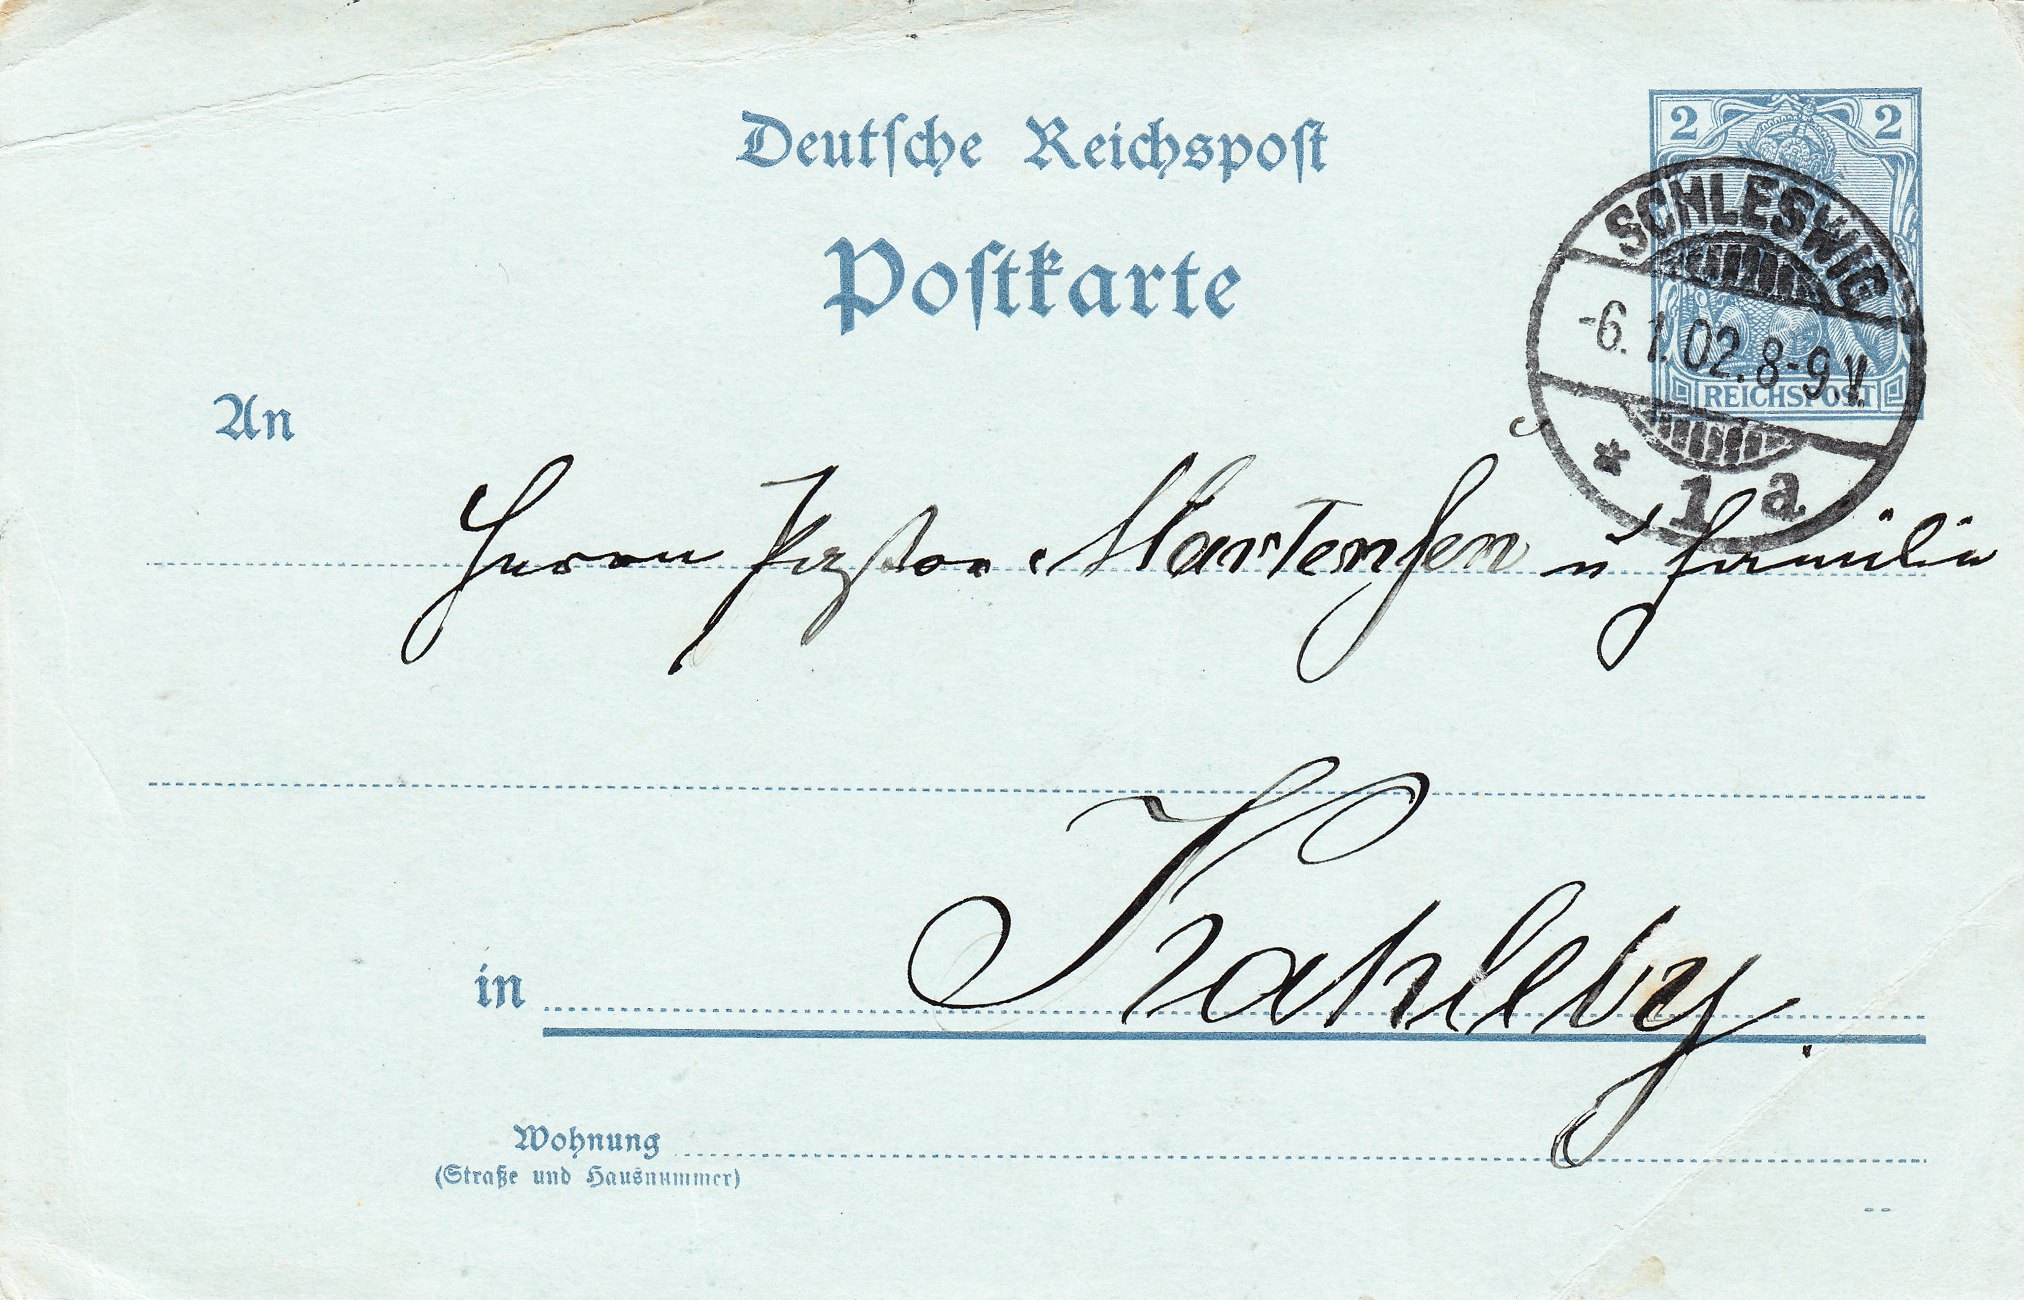 Deutsche Reichspost
Postkarte
2 2
REICHSPOST
SCHLESWIG
-6.1.02.8-9.V.
* 1 a
An
Herrn Pastor Martensen u Familie
in Kahleby.
Wohnung
(Straße und Hausnummer)